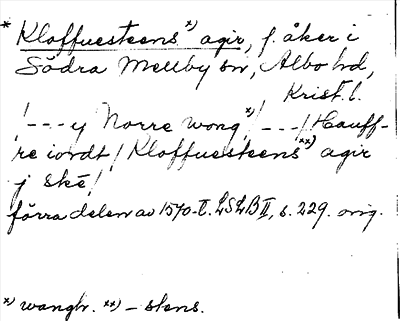 * Kloffuesteens x) agir, f. åker i
Södra Mellby sn, Albo hd,
Krist. l.
/---y Norre wong x)/---/Hauff-
re iordt/ Kloffuesteens xx) agir
j skē/
förra delen av 1570-t. LSLB II, s. 229. orig.
x) wangh. xx) – stens.